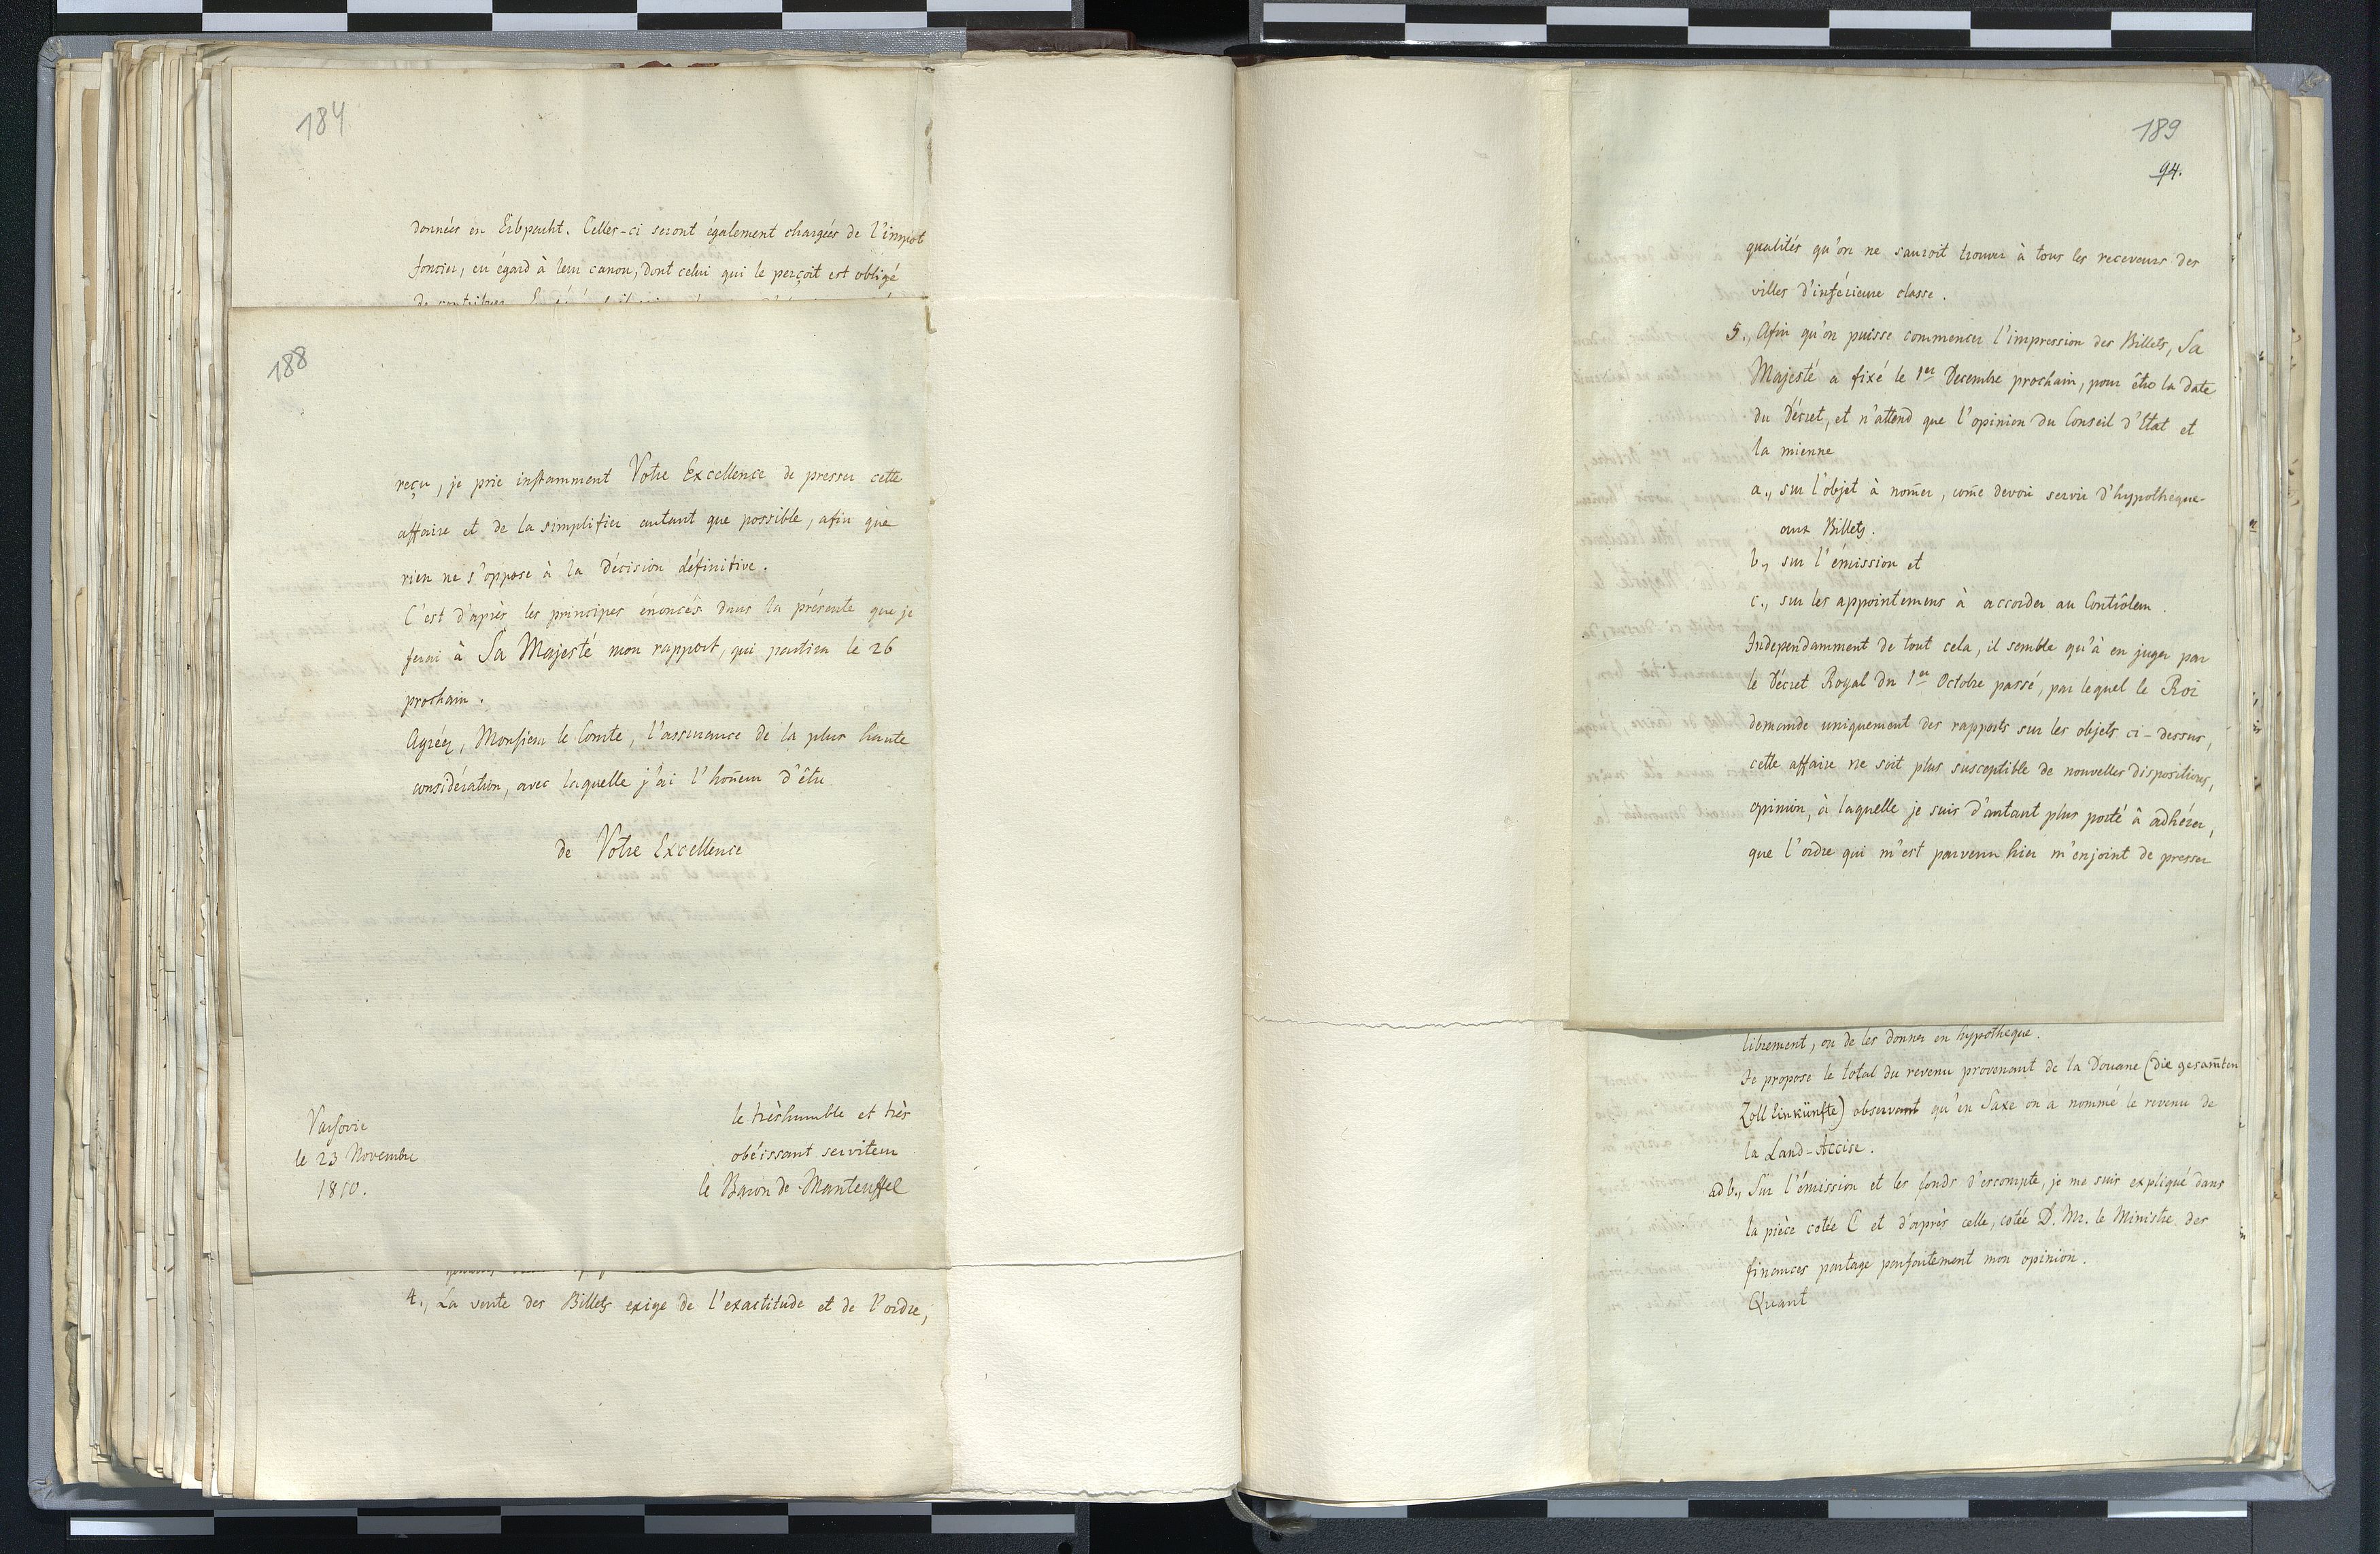 184
données en Erbpacht. Celles-ci seront également chargées de l'impot
foncier, eu égard à leur canon, dont celui qui le perçoit est obligé
de contribuer.
188
reçu, je prie instamment Votre Excellence de presser cette
affaire et de la simplifier autant que possible, afin que
rien ne s'oppose à la décision définitive.
C'est d'après les principes énoncés dans la présente que je
ferai à Sa Majesté mon rapport, qui partira le 26
prochain.
Agréez, Monsieur le Comte, l'assurance de la plus haute
considération, avec laquelle j'ai l'hoñeur d'être
de Votre Excellence
le trèshumble et très
obéissant serviteur
le Baron de Manteuffel
Varsovie
le 23 Novembre
1810.
4., La vente des Billets exige de l'exactitude et de l'ordre,
189
94.
qualités qu'on ne sauroit trouver à tous les receveurs des
villes d'inférieure classe.
5., Afin qu'on puisse commencer l'impression des Billets, Sa
Majesté a fixé le 1er Decembre prochain, pour être la date
du Décret, et n'attend que l'opinion du Conseil d'Etat et
la mienne
a., sur l'objet à nom̃er, com̃e devoir servir d'hypotheque
aux Billets.
b., sur l'émission et
c., sur les appointemens à accorder au Contrôleur.
Independamment de tout cela, il semble qu'à en juger par
le Décret Royal du 1er Octobre passé, par lequel le Roi
demande uniquement des rapports sur les objets ci-dessus,
cette affaire ne soit plus susceptible de nouvelles dispositions,
opinion, à laquelle je suis d'autant plus porté à adhérer,
que l'ordre qui m'est parvenu hier m'enjoint de presser
librement, ou de les donner en hypotheque.
Je propose le total du revenu provenant de la Douane (die gesam̃ten
Zoll Einkünfte) observant qu'en Saxe on a nommé le revenu de
la Land-Accise.
ad b., Sur l'émission et les fonds d'escompte, je me suis expliqué dans
la pièce cotée C et d'après celle, cotée D. Mr. le Ministre des
finances partage parfaitement mon opinion.
Quant